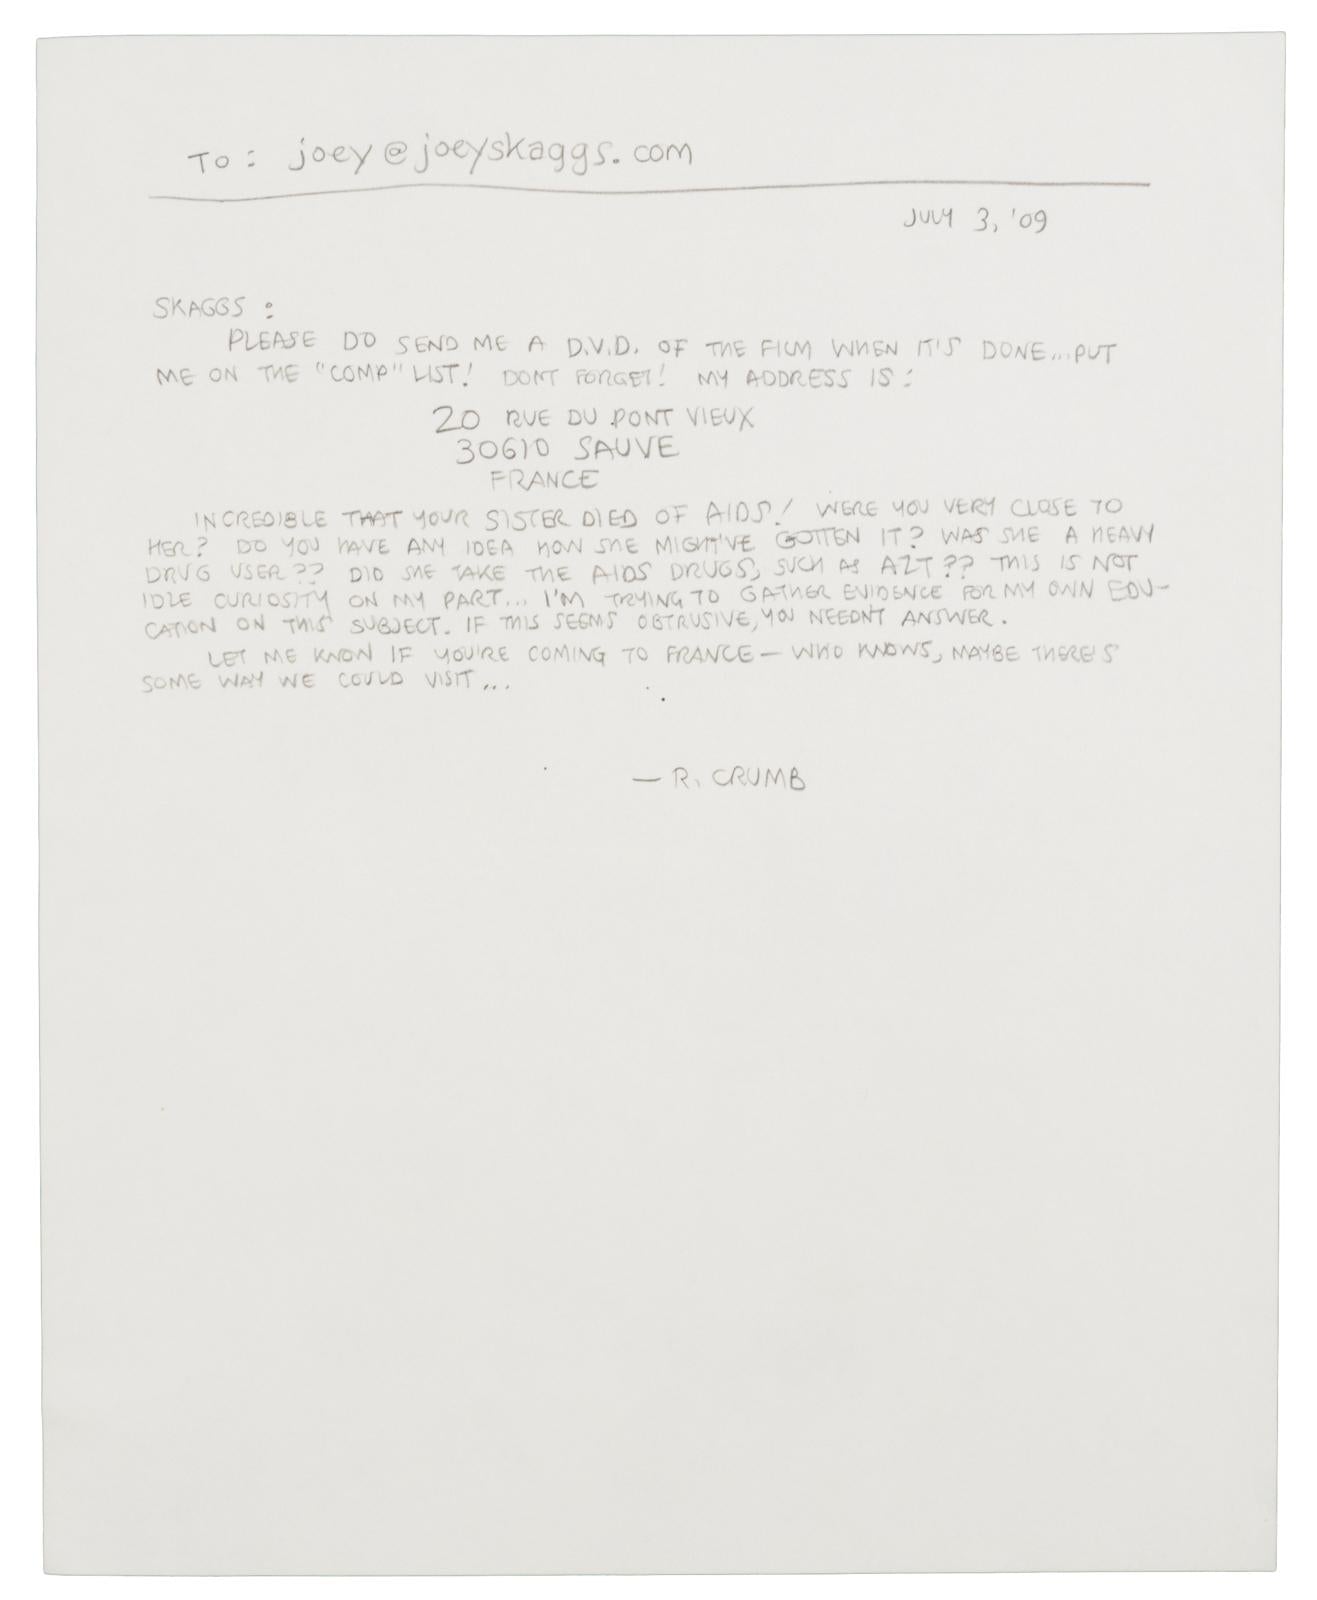 To: joey@joeyskaggs.com
JULY 3, '09
SKAGGS:
PLEASE DO SEND ME A D.V.D. OF THE FILM WHEN IT'S DONE...PUT
ME ON THE "COMP" LIST! DONT FORGET! MY ADDRESS IS:
20 RUE DU PONT VIEUX
30610 SAUVE
FRANCE
INCREDIBLE THAT YOUR SISTER DIED OF AIDS! WERE YOU VERY CLOSE TO
HER? DO YOU HAVE ANY IDEA HOW SHE MIGHT'VE GOTTEN IT? WAS SHE A HEAVY
DRUG USER?? DID SHE TAKE THE AIDS DRUGS, SUCH AS AZT?? THIS IS NOT
IDLE CURIOSITY ON MY PART... I'M TRYING TO GATHER EVIDENCE FOR MY OWN EDU-
CATION ON THIS SUBJECT. IF THIS SEEMS OBTRUSIVE, YOU NEEDN'T ANSWER.
LET ME KNOW IF YOU'RE COMING TO FRANCE — WHO KNOWS, MAYBE THERE'S
SOME WAY WE COULD VISIT...
— R. CRUMB